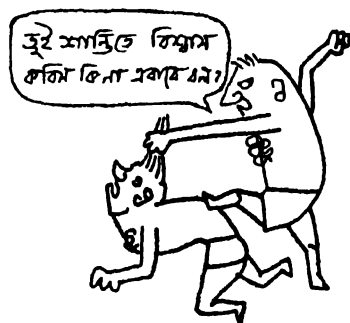 তুই শান্তিতে বিশ্বাস
করিস কিনা এবারে বল?